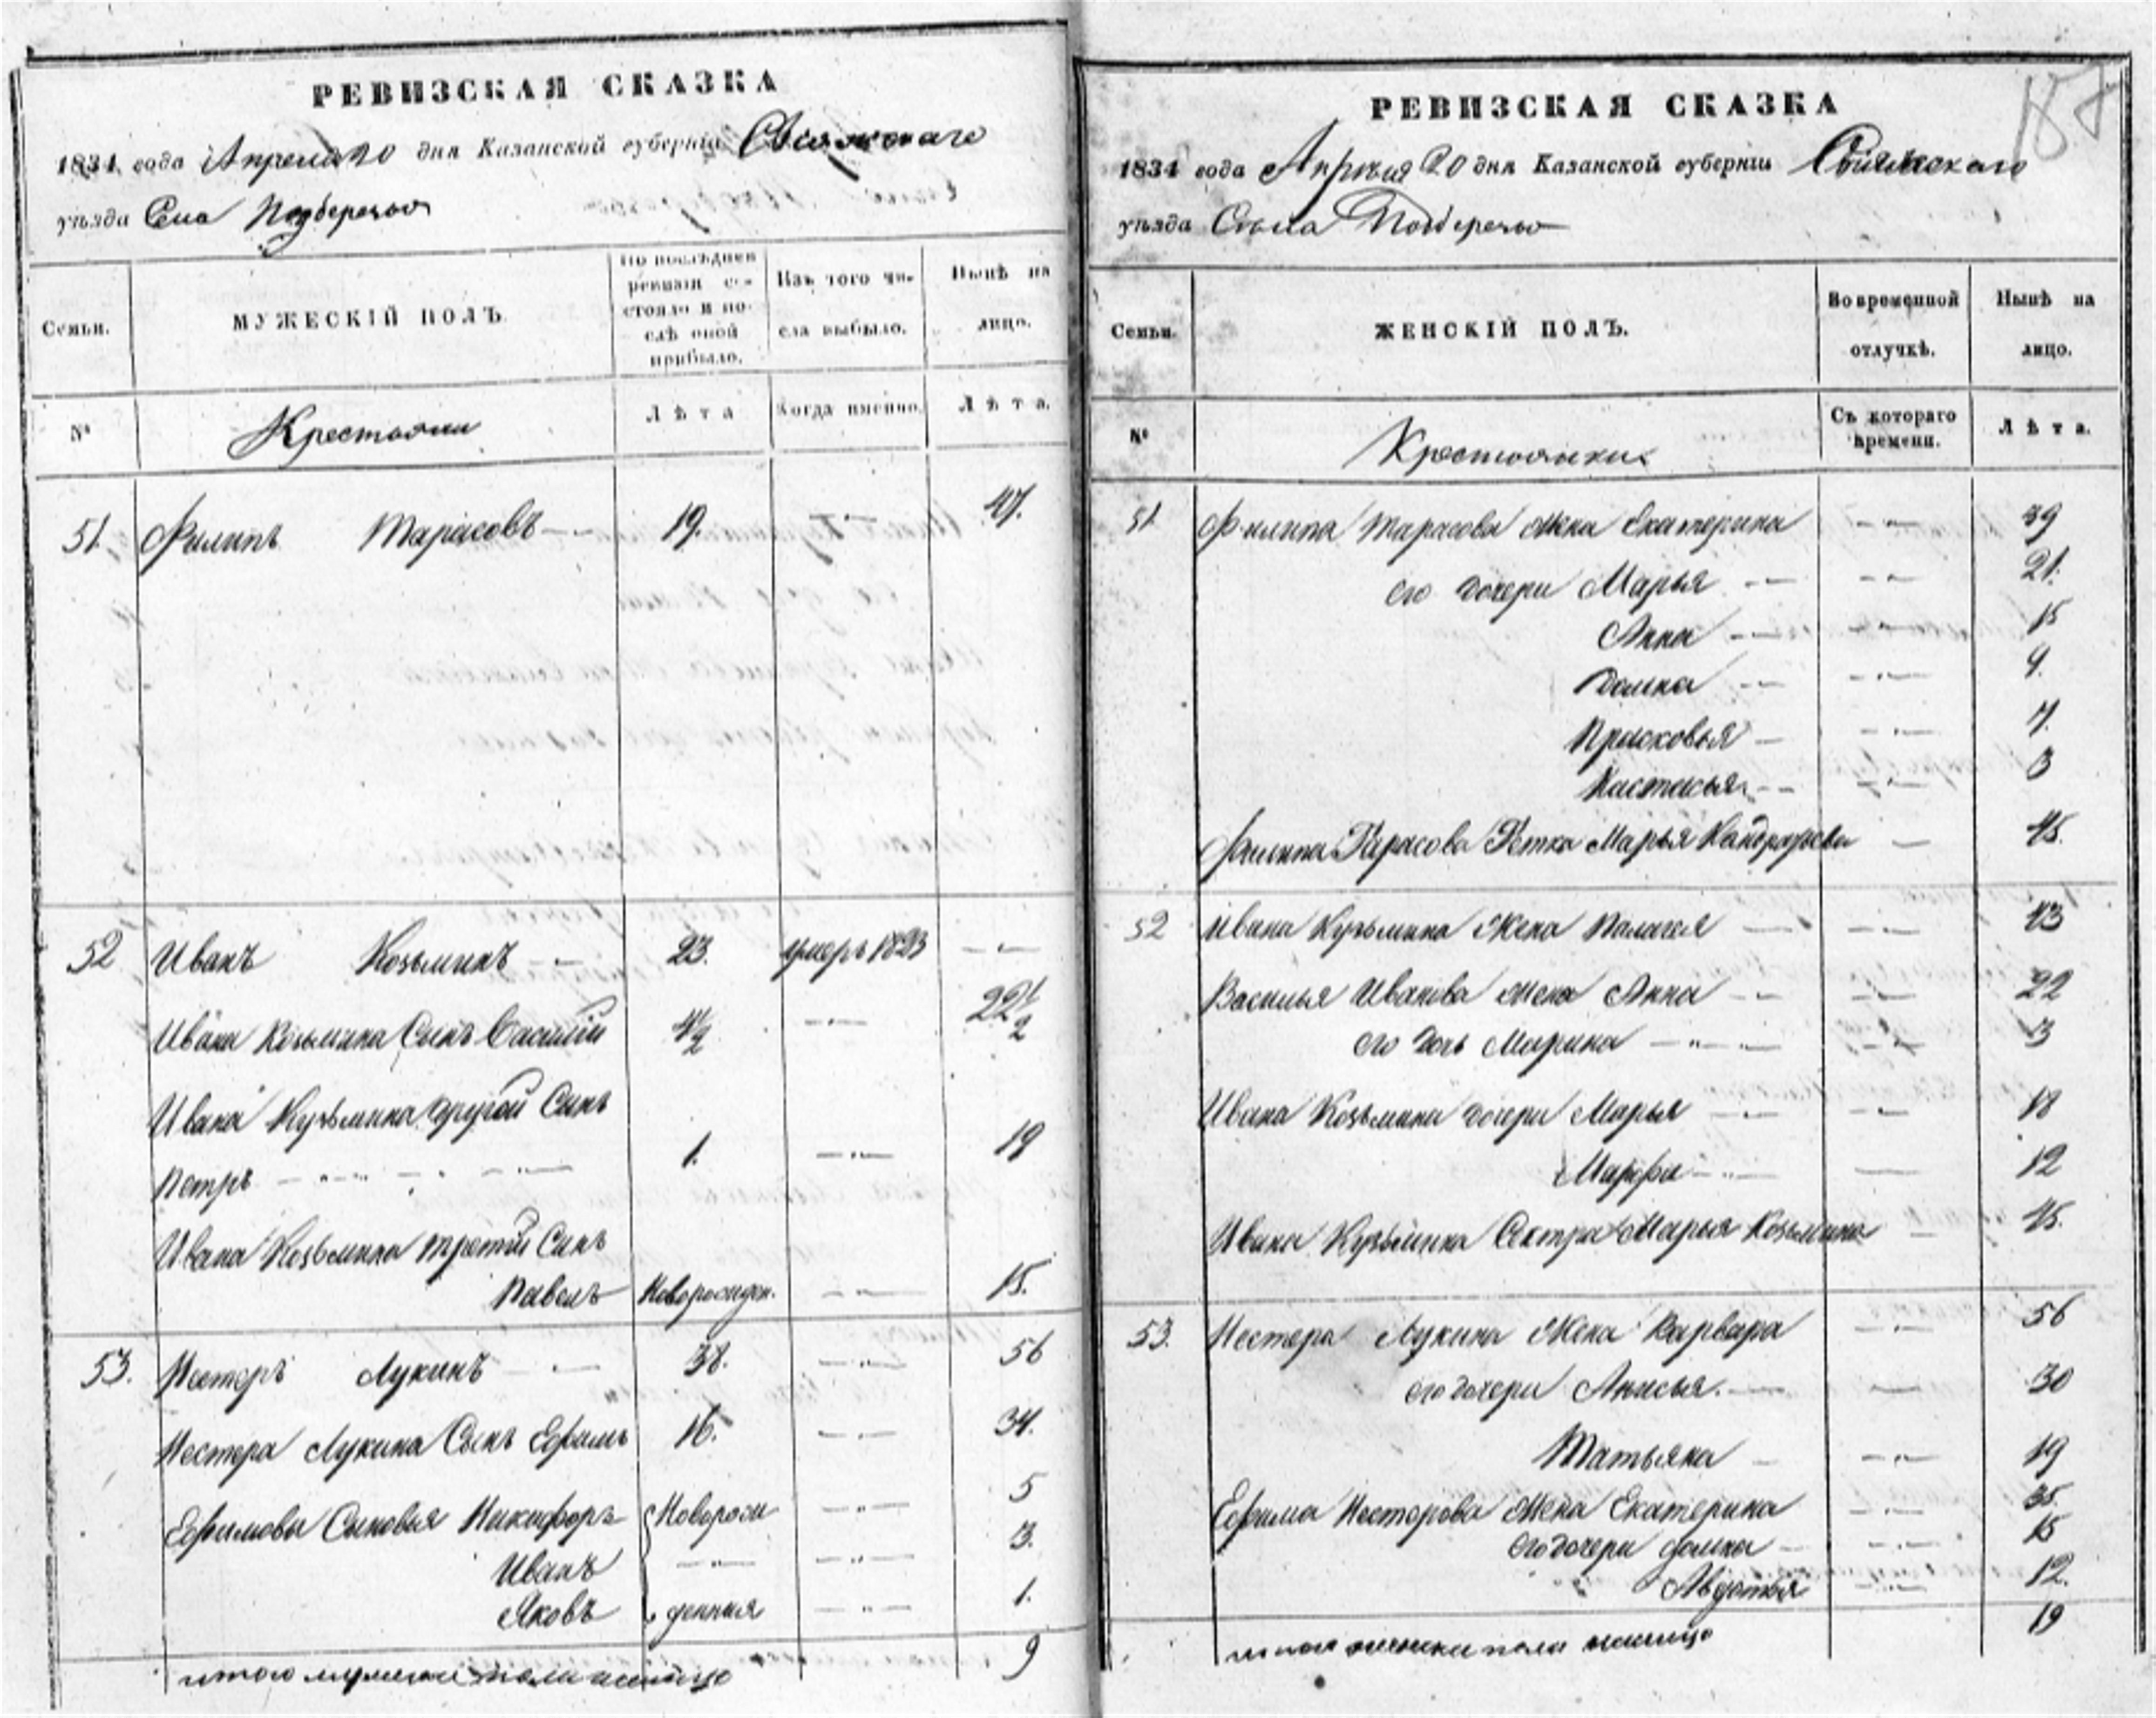 РЕВИЗСКАЯ СКАЗКА
1834 года Апреля 20 дня Казанской губерніи Свіяжскаго
уѣзда Села Подберезья
Семьи.
МУЖЕСКІЙ ПОЛЪ.
По послѣдней ревизіи состояло и послѣ оной прибыло.
Изъ того числа выбыло.
Нынѣ на лицо.
№
Крестьяни
Лѣта
Когда именно.
Лѣта.
51 Филипъ Тарасовъ 19. 47.
52 Иванъ Козьминъ 23. умеръ 1823
Ивана Козьмина Сынъ Василій 4½ 22½
Ивана Кузьмина другой Сынъ
Петръ 1. 19
Ивана Козьмина третій Сынъ
Павелъ Новорожден. 15.
53. Нестеръ Лукинъ 38. 56
Нестера Лукина Сынъ Ефимъ 16. 34.
Ефимовы Сыновья Никифоръ Новорож 5
Иванъ 3.
Яковъ денныя 1.
итого мужеска пола налицо 9
РЕВИЗСКАЯ СКАЗКА
187
1834 года Апреля 20 дня Казанской губерніи Свіяжскаго
уѣзда Села Подберезья
Семьи.
ЖЕНСКІЙ ПОЛЪ.
Во временной отлучкѣ.
Нынѣ на лицо.
№
Крестьянки
Съ котораго времени.
Лѣта.
51 Филипа Тарасова Жена Екатерина 39
его дочери Марья 21.
Анна 15
Домна 9.
Прасковья 7.
Настасья 3
Филипа Тарасова Тетка Марья 45.
52 Ивана Кузьмина Жена Палагея 43
Василья Иванова Жена Анна 22
его дочь Марина 3
Ивана Козьмина дочери Марья 18
Марфа 12
Ивана Кузьмина Сестра Марья Козьмина 45.
53. Нестера Лукина Жена Варвара 56
его дочери Анисья. 30
Татьяна 19
Ефима Нестерова Жена Екатерина 35.
его дочери Домна 15
Авдотья 12.
итого женска пола налицо 19